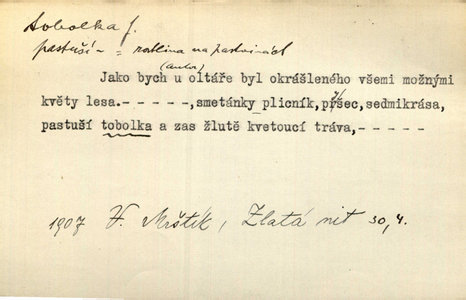 tobolka f.
pastuší – = rostlina na pastvinách
(autor)
Jako bych u oltáře byl okrášleného všemi možnými
květy lesa.- - - - -,smetánky plicník,pršec,sedmikrása,
pastuší tobolka a zas žlutě kvetoucí tráva,- - - - -
1907 V. Mrštík, Zlatá nit 30,4.